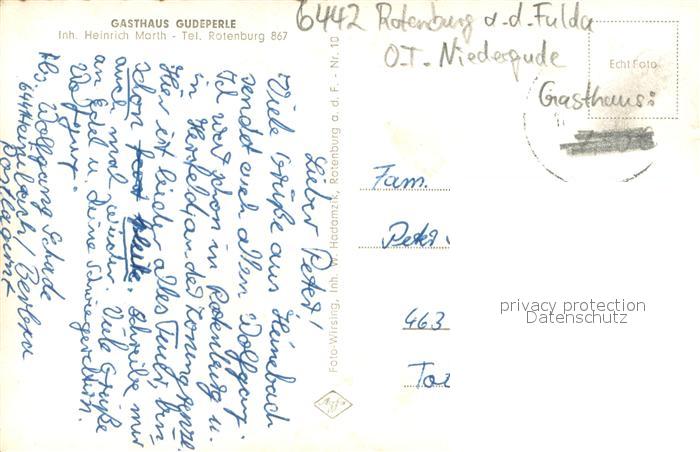 GASTHAUS GUDEPERLE
Inh. Heinrich Marth - Tel. Rotenburg 867
6442 Rotenburg a.d. Fulda
O.T. Niedergude
Gasthaus:
Echt Foto
Lieber Peter!
Viele Grüße aus Heinebach
sendet euch allen Wolfgang.
Ich war schon in Rotenburg u.
in Hersfeld an der Zonengrenze.
Hier ist leider alles Teuer, bin
schon fast pleite. Schreibe mir
auch mal wieder. Viele Grüße
an Edel u. Deine Schwiegereltern.
Wolfgang.
Abs. Wolfgang Schade
Postlagernd
Foto-Wirsing, Inh. W. Hadamzik, Rotenburg a. d. F. - Nr. 10
Agfa
Fam.
Peter
463
privacy protection
Datenschutz